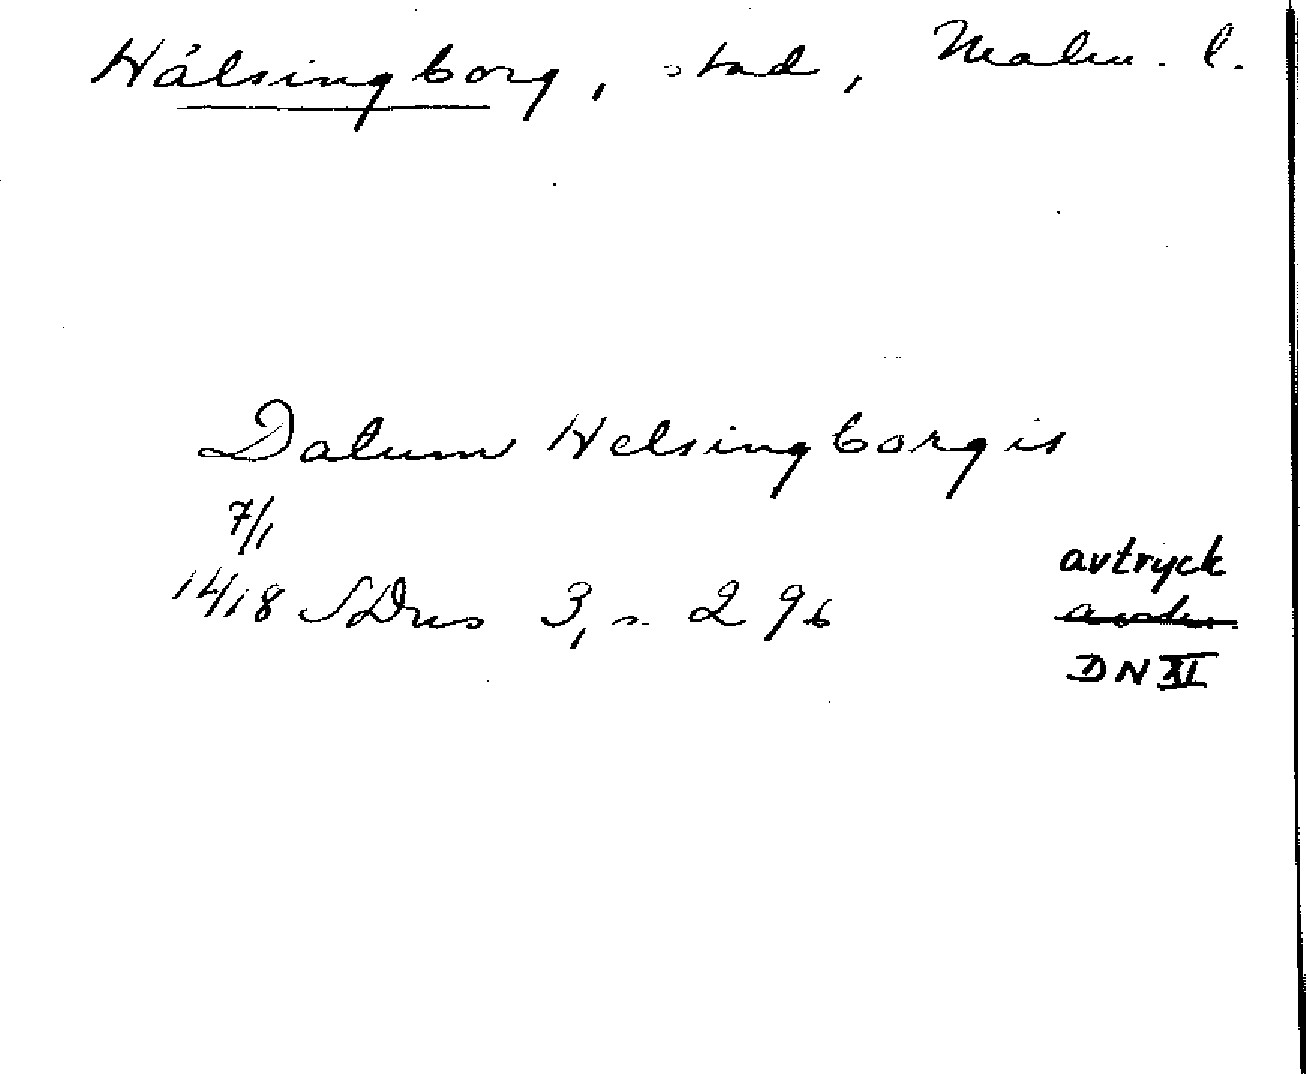 Hälsingborg, stad, Malm. l.
Datum Helsingborgis
7/1
1418 SDns 3, s. 296
avtryck
DN XI